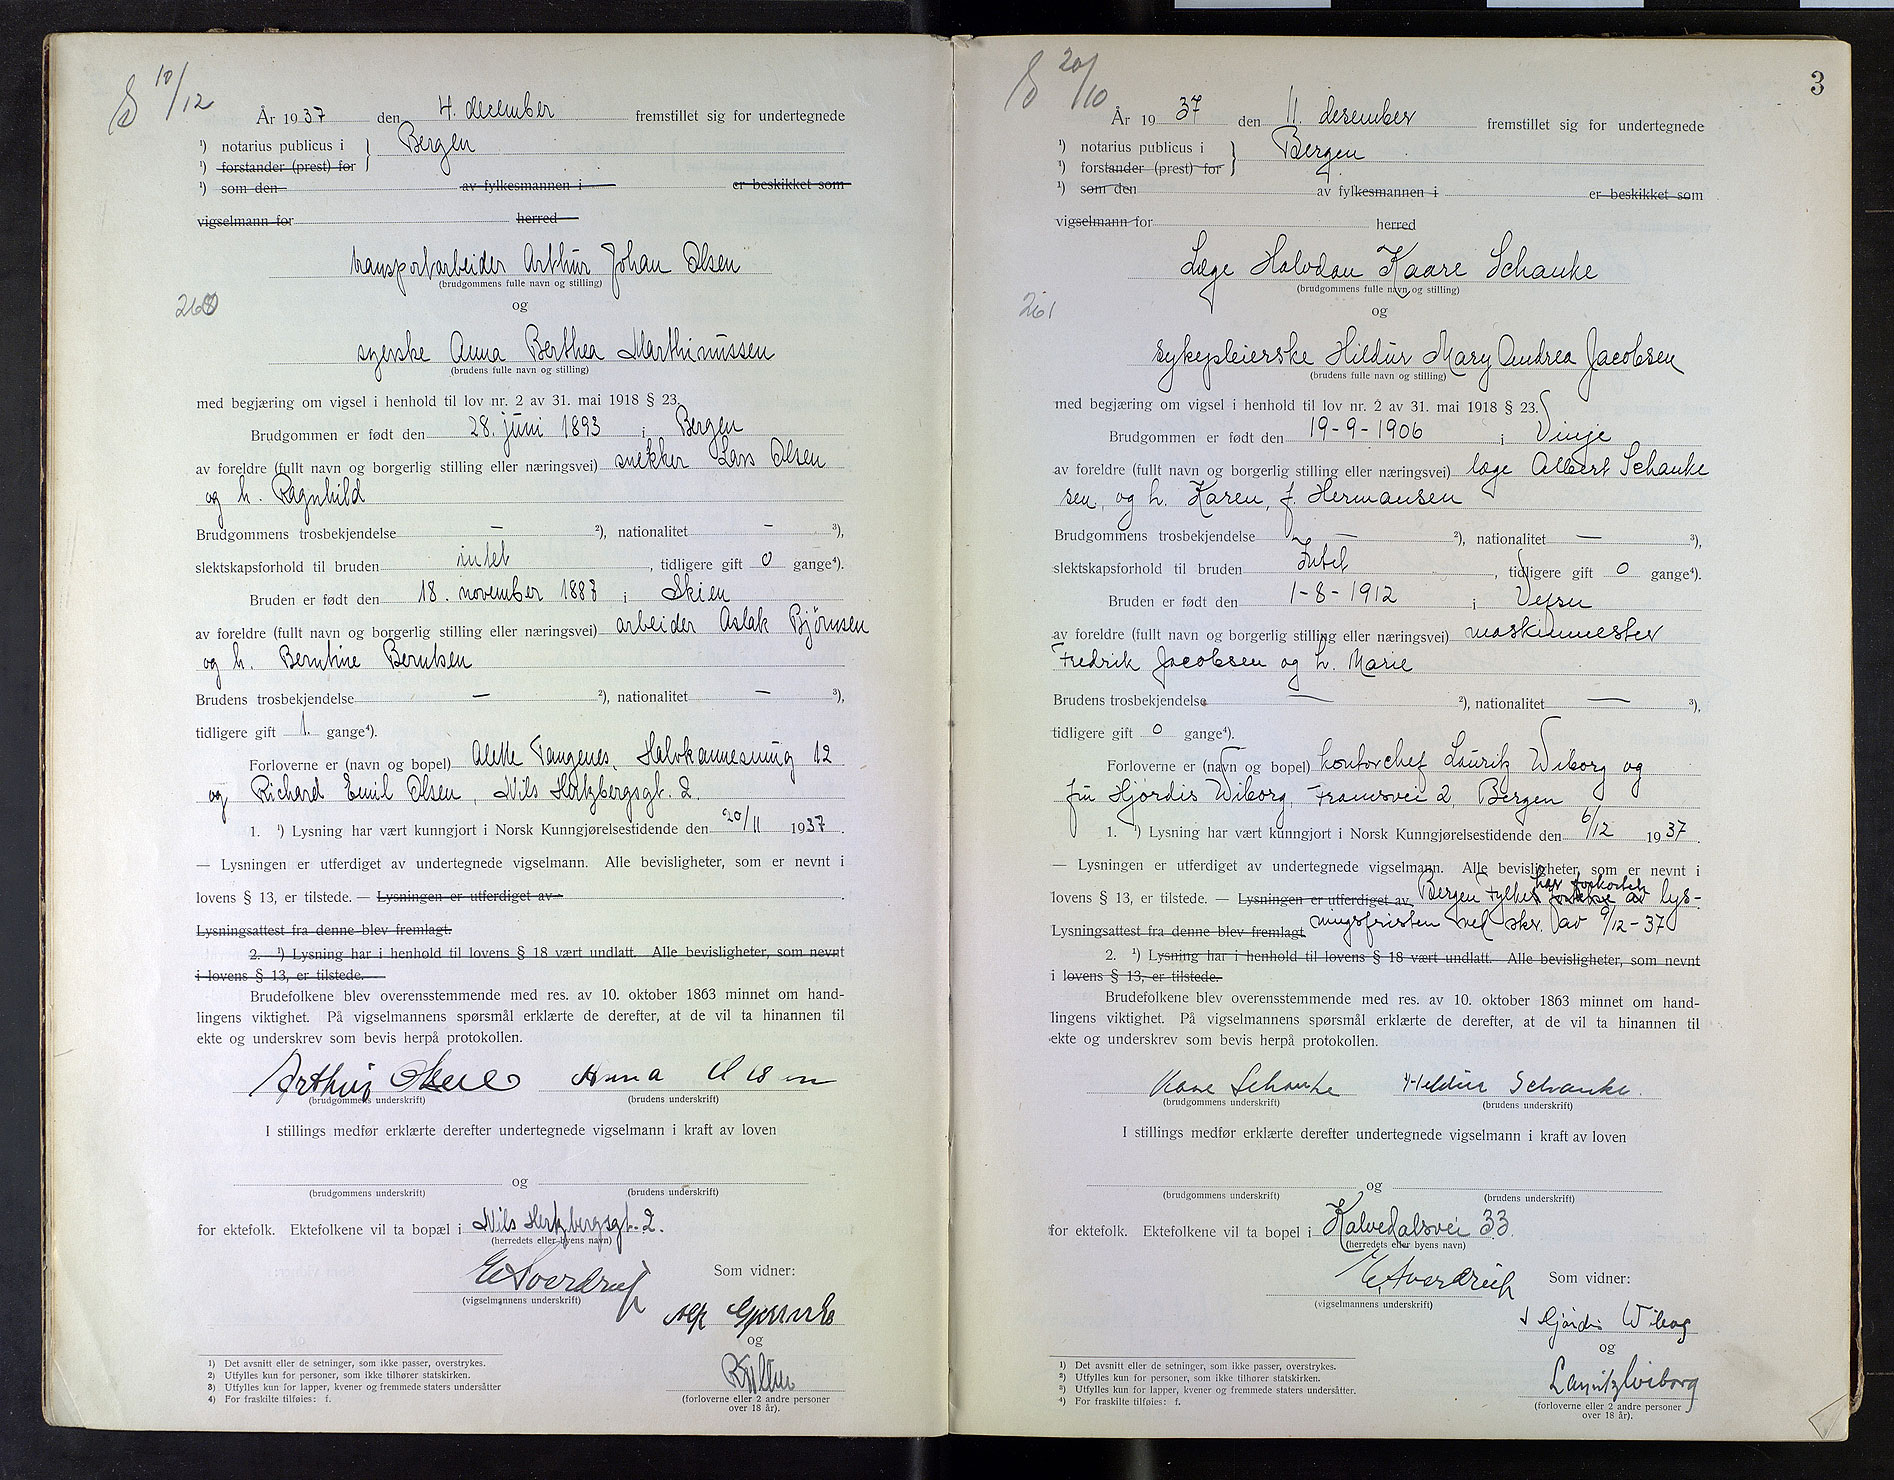 10/12
År 1937 den 4. december fremstillet sig for undertegnede
¹) notarius publicus i } Bergen
¹) forstander (prest) for
¹) som den av fylkesmannen i er beskikket som
vigselmann for herred
transportarbeider Arthur Johan Olsen
(brudgommens fulle navn og stilling)
260
og
syerske Anna Berthea Marthinussen
(brudens fulle navn og stilling)
med begjæring om vigsel i henhold til lov nr. 2 av 31. mai 1918 § 23.
Brudgommen er født den 28. juni 1893 i Bergen
av foreldre (fullt navn og borgerlig stilling eller næringsvei) snekker Lars Olsen
og h. Ragnhild
Brudgommens trosbekjendelse — ²), nationalitet — ³),
slektskapsforhold til bruden intet, tidligere gift 0 gange⁴).
Bruden er født den 18. november 1883 i Skien
av foreldre (fullt navn og borgerlig stilling eller næringsvei) arbeider Aslak Bjørnsen
og h. Berntine Berntsen
Brudens trosbekjendelse — ²), nationalitet — ³),
tidligere gift 1. gange⁴).
Forloverne er (navn og bopel) Alette Tangenes, Halvkannesmug 12
og Richard Emil Olsen, Nils Hertzbergsgt. 2.
1. ¹) Lysning har vært kunngjort i Norsk Kunngjørelsestidende den 20/11 1937.
— Lysningen er utferdiget av undertegnede vigselmann. Alle bevisligheter, som er nevnt i
lovens § 13, er tilstede. — Lysningen er utferdiget av
Lysningsattest fra denne blev fremlagt.
2. ¹) Lysning har i henhold til lovens § 18 vært undlatt. Alle bevisligheter, som nevnt
i lovens § 13, er tilstede.
Brudefolkene blev overensstemmende med res. av 10. oktober 1863 minnet om hand-
lingens viktighet. På vigselmannens spørsmål erklærte de derefter, at de vil ta hinannen til
ekte og underskrev som bevis herpå protokollen.
Arthur Olsen Anna Olsen
(brudgommens underskrift) (brudens underskrift)
I stillings medfør erklærte derefter undertegnede vigselmann i kraft av loven
og
(brudgommens underskrift) (brudens underskrift)
for ektefolk. Ektefolkene vil ta bopæl i Nils Hertzbergsgt. 2.
(herredets eller byens navn)
E Sverdrup Som vidner:
(vigselmannens underskrift)
og
(forloverne eller 2 andre personer
over 18 år).
¹) Det avsnitt eller de setninger, som ikke passer, overstrykes.
²) Utfylles kun for personer, som ikke tilhører statskirken.
³) Utfylles kun for lapper, kvener og fremmede staters undersåtter
⁴) For fraskilte tilføies: f.
3
20/10
År 1937 den 11. desember fremstillet sig for undertegnede
¹) notarius publicus i } Bergen
¹) forstander (prest) for
¹) som den av fylkesmannen i er beskikket som
vigselmann for herred
Læge Halvdan Kaare Schanke
(brudgommens fulle navn og stilling)
261
og
sykepleierske Hildur Mary Andrea Jacobsen
(brudens fulle navn og stilling)
med begjæring om vigsel i henhold til lov nr. 2 av 31. mai 1918 § 23.
Brudgommen er født den 19-9-1906 i Vinje
av foreldre (fullt navn og borgerlig stilling eller næringsvei) læge Albert Schanke
sen. og h. Karen, f. Hermansen
Brudgommens trosbekjendelse — ²), nationalitet — ³),
slektskapsforhold til bruden Intet, tidligere gift 0 gange⁴).
Bruden er født den 1-8-1912 i Vefsn
av foreldre (fullt navn og borgerlig stilling eller næringsvei) maskinmester
Fredrik Jacobsen og h. Marie
Brudens trosbekjendelse — ²), nationalitet — ³),
tidligere gift 0 gange⁴).
Forloverne er (navn og bopel) kontorchef Lauritz Wiborg og
fru Hjørdis Wiborg, Framsvei 2, Bergen
1. ¹) Lysning har vært kunngjort i Norsk Kunngjørelsestidende den 6/12 1937.
— Lysningen er utferdiget av undertegnede vigselmann. Alle bevisligheter, som er nevnt i
lovens § 13, er tilstede. — Lysningen er utferdiget av Bergen Fylke har forkortet lys-
Lysningsattest fra denne blev fremlagt. ningsfristen ved skr. av 9/12-37
2. ¹) Lysning har i henhold til lovens § 18 vært undlatt. Alle bevisligheter, som nevnt
i lovens § 13, er tilstede.
Brudefolkene blev overensstemmende med res. av 10. oktober 1863 minnet om hand-
lingens viktighet. På vigselmannens spørsmål erklærte de derefter, at de vil ta hinannen til
ekte og underskrev som bevis herpå protokollen.
Kaare Schanke Hildur Schanke.
(brudgommens underskrift) (brudens underskrift)
I stillings medfør erklærte derefter undertegnede vigselmann i kraft av loven
og
(brudgommens underskrift) (brudens underskrift)
for ektefolk. Ektefolkene vil ta bopel i Kalvedalsvei 33.
(herredets eller byens navn)
E. Sverdrup Som vidner:
(vigselmannens underskrift)
Hjørdis Wiborg
og
Lauritz Wiborg
(forloverne eller 2 andre personer
over 18 år).
¹) Det avsnitt eller de setninger, som ikke passer, overstrykes.
²) Utfylles kun for personer, som ikke tilhører statskirken.
³) Utfylles kun for lapper, kvener og fremmede staters undersåtter.
⁴) For fraskilte tilføies: f.